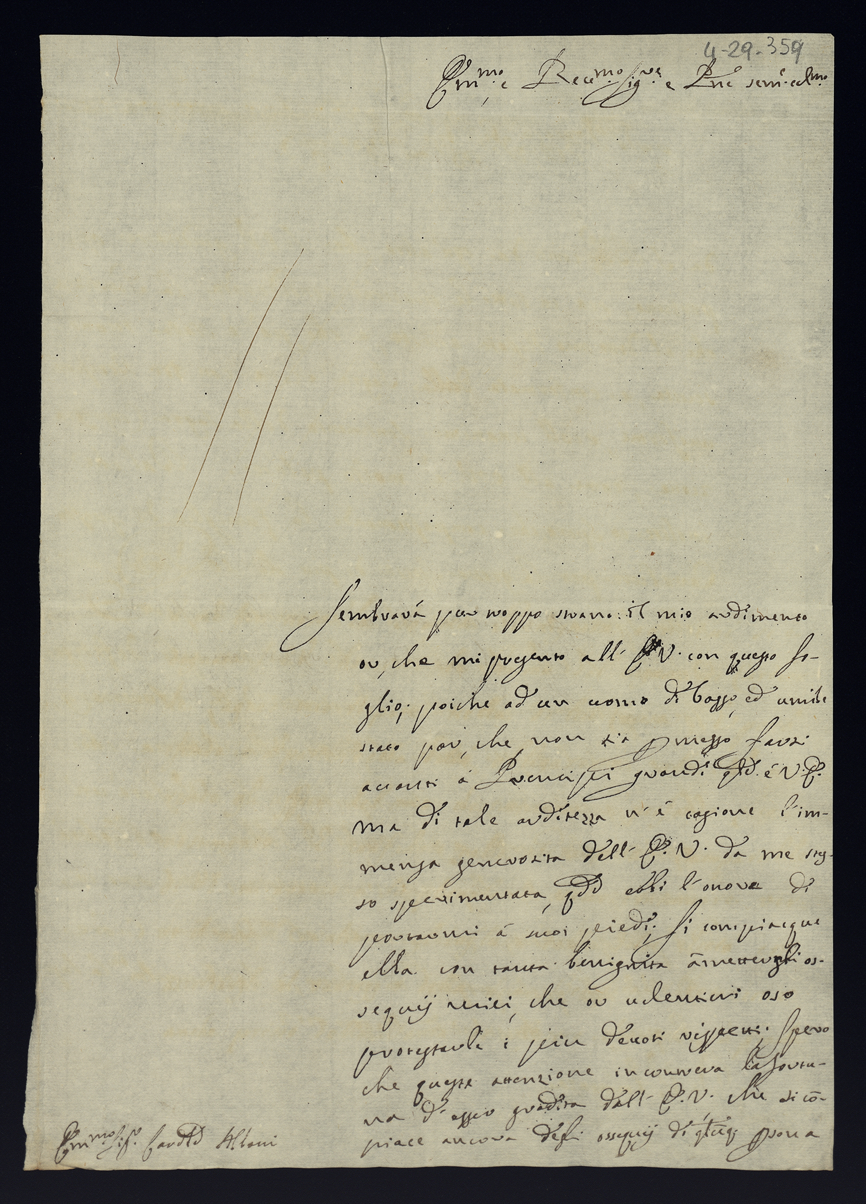 4-29-359
Em.mo e Rev.mo Sig.re e P.ne sem.e col.mo
Sembrarà pur troppo strano il mio ardimento
or, che mi presento all' E. V. con questo fo-
glio; poiche ad un uomo di basso, ed umile
stato par, che non sia pmesso farsi
avanti à Prencipi grandi qtd. è V. E.
ma di tale arditezza n' è cagione l'im-
mensa generosita dell' E. V. da me stes-
so sperimentata, qdo ebbi l'onore di
portarmi à suoi piedi; si compiacque
ella con tanta benignita ametter gli os-
sequij miei, che or volentieri oso
protestarle i piu devoti rispetti; spero
che questa attenzione incontrera la fortu-
na d'esser gradita dall' E. V. che si cō-
piace ancora degli ossequij di psona
Em.mo Sig.r Card.l Albani